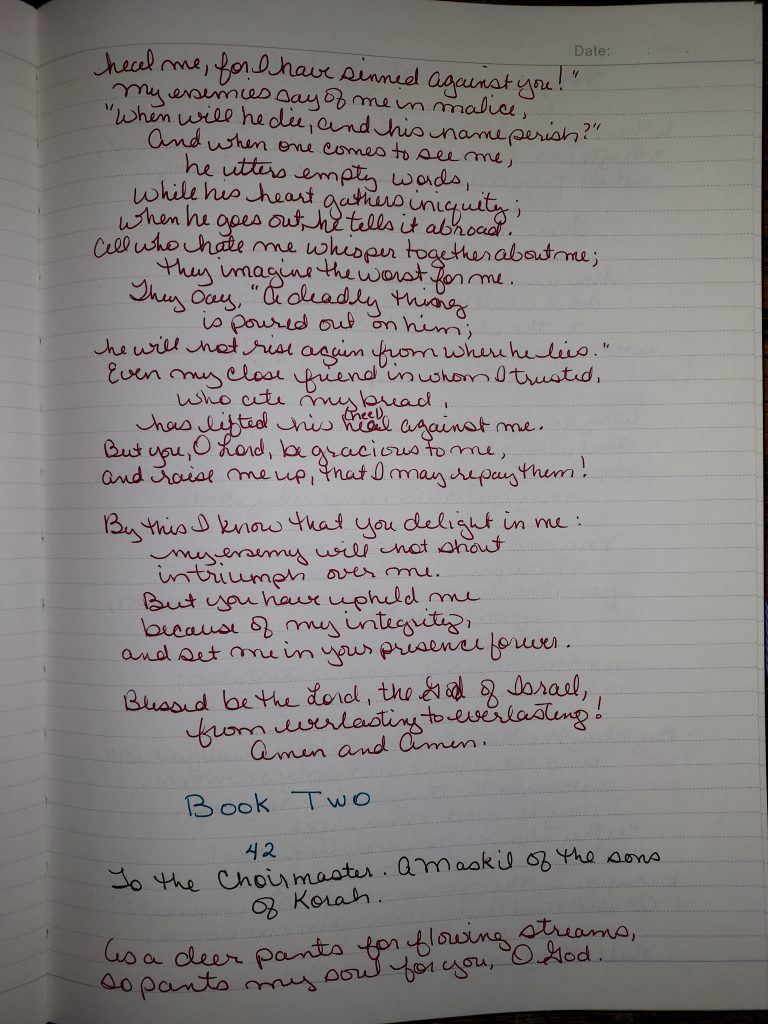 Date:
heal me, for I have sinned against you!"
my enemies say of me in malice,
"When will he die, and his name perish?"
And when one comes to see me,
he utters empty words,
while his heart gathers iniquity;
when he goes out, he tells it abroad.
All who hate me whisper together about me;
they imagine the worst for me.
They say, "A deadly thing
is poured out on him;
he will not rise again from where he lies."
Even my close friend in whom I trusted,
who ate my bread,
(heel)
has lifted his heal against me.
But you, O Lord, be gracious to me,
and raise me up, that I may repay them!
By this I know that you delight in me:
my enemy will not shout
in triumph over me.
But you have upheld me
because of my integrity,
and set me in your presence forever.
Blessed be the Lord, the God of Israel,
from everlasting to everlasting!
Amen and Amen.
Book Two
42
To the Choirmaster. A Maskil of the sons
of Korah.
As a deer pants for flowing streams,
so pants my soul for you, O God.